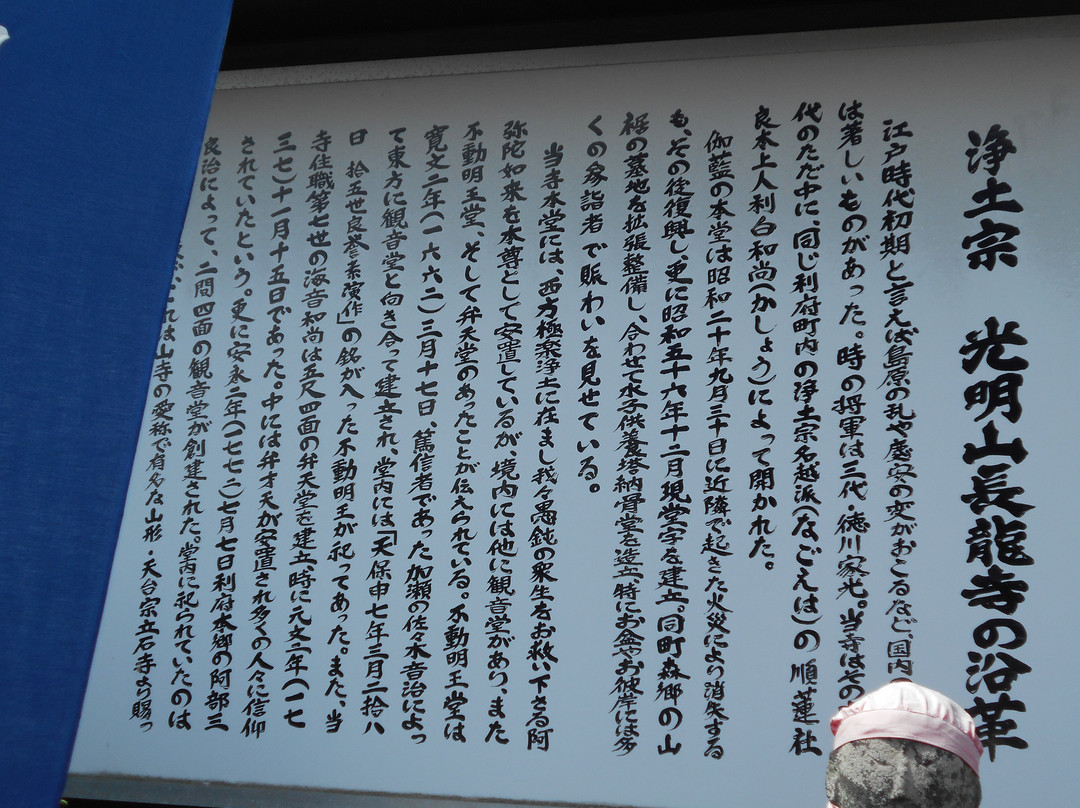 浄土宗 光明山長龍寺の沿革
江戸時代初期と言えば島原の乱や慶安の変がおこるなど、国内
は著しいものがあった。時の将軍は三代・徳川家光。当寺はその
代のただ中に、同じ利府町内の浄土宗名越派(なごえは)の順蓮社
良本上人利白和尚(かしょう)によって開かれた。
伽藍の本堂は昭和二十年九月三十日に近隣で起きた火災により消失する
も、その後復興し、更に昭和五十六年十二月現堂宇を建立。同町森郷の山
裾の墓地を拡張整備し、合わせて水子供養塔納骨堂を造立、特にお盆やお彼岸には多
くの参詣者で賑わいを見せている。
当寺本堂には、西方極楽浄土に在まし我々愚鈍の衆生をお救い下さる阿
弥陀如来を本尊として安置しているが、境内には他に観音堂があり、また
不動明王堂、そして弁天堂のあったことが伝えられている。不動明王堂は
寛文二年(一六六二)三月十七日、篤信者であった加瀬の佐々木音治によっ
て東方に観音堂と向き合って建立され、堂内には「天保申七年三月二拾八
日 拾五世良誉系演作」の銘が入った不動明王が祀ってあった。また、当
寺住職第七世の海音和尚は五尺四面の弁天堂を建立、時に元文二年(一七
三七)十一月十五日であった。中には弁才天が安置され多くの人々に信仰
されていたという。更に安永二年(一七七二)七月七日利府本郷の阿部三
良治によって、二間四面の観音堂が創建された。堂内に祀られていたのは
これは山寺の愛称で有名な山形・天台宗立石寺より賜っ